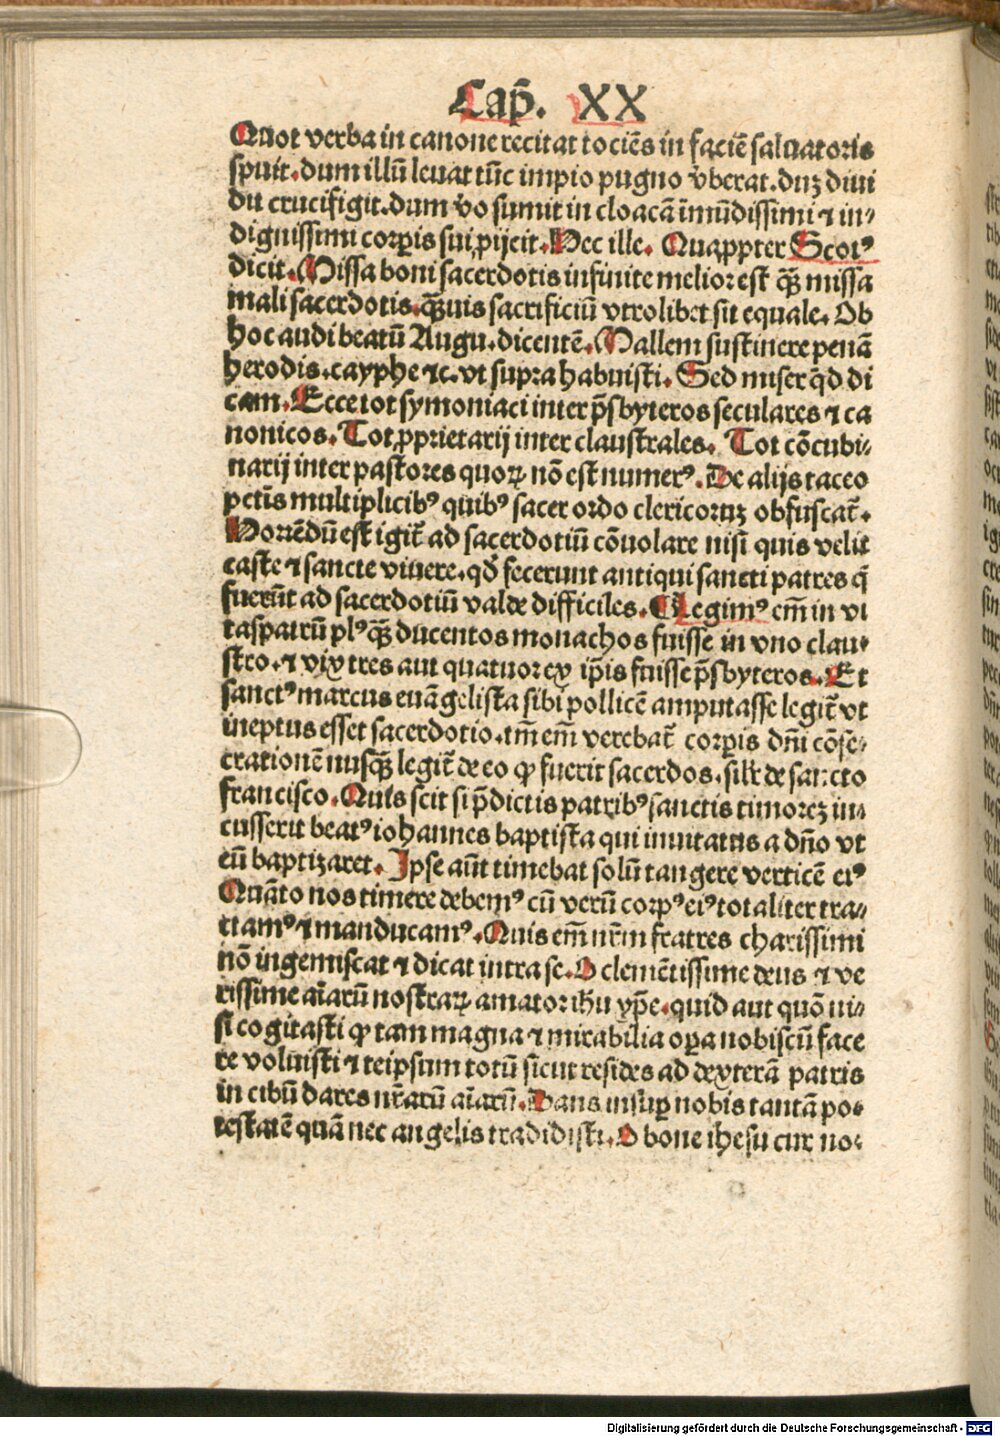 Cap̄. XX
Quot verba in canone recitat tociēs in faciē saluatoris
spuit. dum illū leuat tūc impio pugno v̄berat. duꝫ diui
dit crucifigit. dum v̄o sumit in cloacā īmūdissimi ⁊ in⸗
dignissimi corꝑis sui ꝓijcit. Hec ille. Quaꝓpter Scotꝰ
dicit. Missa boni sacerdotis infinite melior est q̄ꝫ missa
mali sacerdotis. q̄ꝫuis sacrificiū vtrolibet sit equale. Ob
hoc audi beatū Augu. dicentē. Mallem sustinere penā
herodis. cayphe ⁊c. vt supra habuisti. Sed miser qd̄ di
cam. Ecce tot symoniaci inter p̄sbyteros seculares ⁊ ca
nonicos. Tot ꝓprietarij inter claustrales. Tot cōcubi⸗
narij inter pastores quoꝝ nō est numerꝰ. De alijs taceo
pctīs multiplicibꝰ quibꝰ sacer ordo clericoruꝫ obfuscat᷑.
Horrēdū est igit᷑ ad sacerdotiū cōuolare nisi quis velit
caste ⁊ sancte viuere. qd̄ fecerunt antiqui sancti patres q̄
fuerūt ad sacerdotiū valde difficiles. ¶ Legimꝰ em̄ in vi
taspatrū plꝰq̄ꝫ ducentos monachos fuisse in vno clau⸗
stro. ⁊ vix tres aut quatuor ex ip̄is fuisse p̄sbyteros. Et
sanctꝰ marcus euāgelista sibi pollicē amputasse legit᷑ vt
ineptus esset sacerdotio. tm̄ em̄ verebat᷑ corꝑis dn̄i cōse⸗
crationē nusq̄ꝫ legit᷑ de eo ꝙ fuerit sacerdos. sil̄r de sancto
francisco. Quis scit si p̄dictis patribꝰ sanctis timoreꝫ in⸗
cusserit beatꝰ iohannes baptista qui inuitatus a dn̄o vt
eū baptizaret. Ipse aūt timebat solū tangere verticē eiꝰ
Quāto nos timere debemꝰ cū verū corpꝰ eiꝰ totaliter tra⸗
ctamꝰ ⁊ manducamꝰ. Quis em̄ nr̄m fratres charissimi
nō ingemiscat ⁊ dicat intra se. O clemētissime deus ⁊ ve
rissime aīarū nostraꝝ amator ihū xp̄e. quid aut quō ni⸗
si cogitasti ꝙ tam magna ⁊ mirabilia oꝑa nobiscū face
re voluisti ⁊ teipsum totū sicut resides ad dexterā patris
in cibū dares nr̄arū aīarū. Dans insuꝑ nobis tantā po⸗
testatē quā nec angelis tradidisti. O bone ihesu cur no⸗
Digitalisierung gefördert durch die Deutsche Forschungsgemeinschaft - DFG